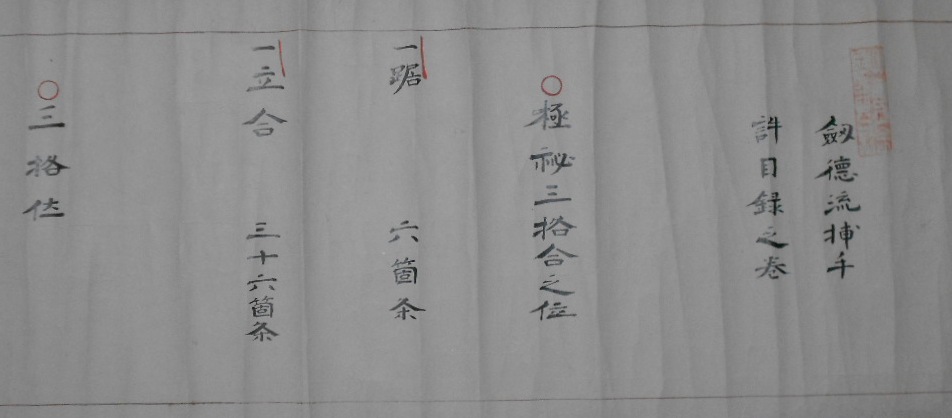 劔德流捕手
許目録之巻
○極祕三拾合之位
一踞 六箇条
一立合 三十六箇条
○三拾位